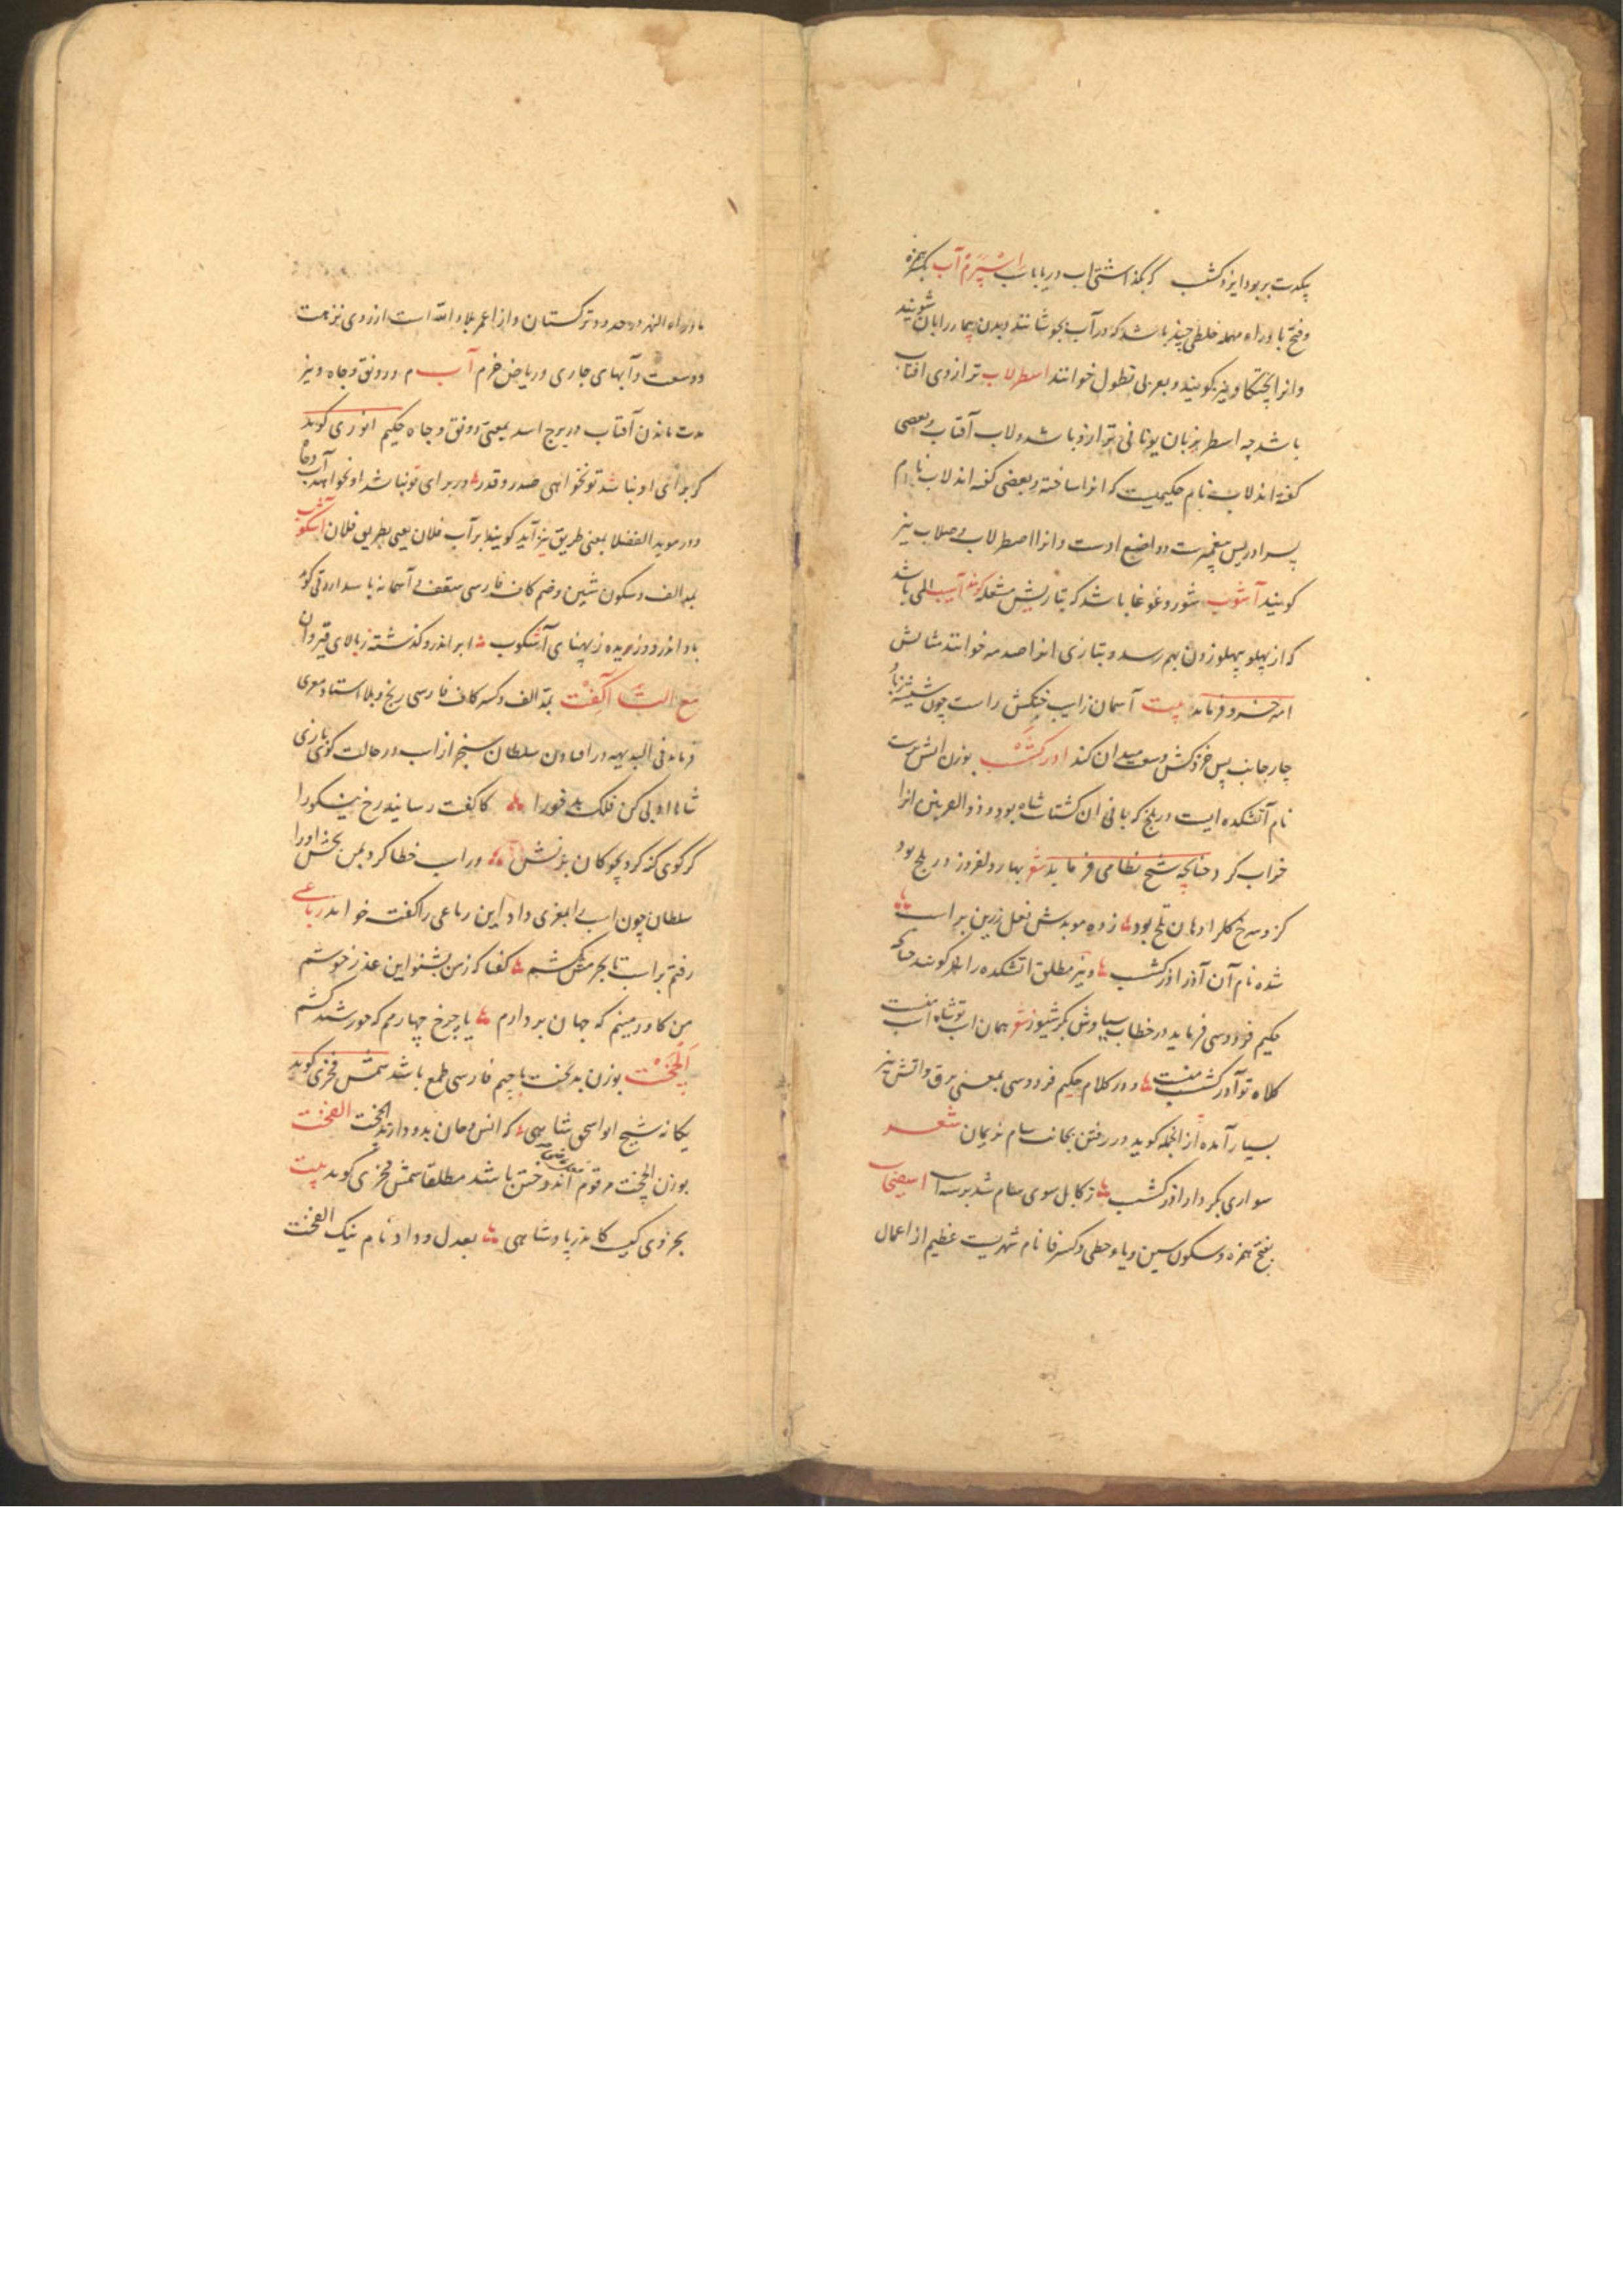 پیکرت بربود ایزدکشب که بگذاشتی اب دریا باب اسپرم آب بکسر همزه
وفتح با و راء مهمله خلطی چند باشد که در آب بجوشانند و بدن بیمار را بان شویند
وانرا نیز گویند و بعربی نطول خوانند اسطرلاب ترازوی افتاب
باشد چه اسطر بزبان یونانی ترازو باشد و لاب آفتاب و بعضی
گفته اند لاب نام حکیمیست که انرا ساخته و بعضی گفته اند لاب نام
پسر ادریس پیغمبرست و واضع اوست و انرا اصطرلاب و صلاب نیز
گویند آشوب شور و غوغا باشد که بتازیش مشغله گویند آسیب المی باشد
که از پهلو بپهلو زدن بهم رسد و بتازی انرا صدمه خوانند مثالش
امیر خسرو فرماید بیت آسمان زاسیب خنکش راست چون شیشه زباد
چار جانب پس خزد کش وسعت میدان کند اذرکشب بوزن اتش پرست
نام آتشکده ایست در بلخ که بانی ان کشتاسب شاه بود و ذوالقرنین انرا
خراب کرد چنانچه شیخ نظامی فرماید شعر بهار دلفروز در بلخ بود
کزو سرخ گلرا دهان تلخ بود زده موبدش نعل زرین بر اسب
شده نام آن آذر اذرکشب و نیز مطلق اتشکده را گویند چنانکه
حکیم فردوسی فرماید در خطاب سیاوش بکرشیوز شعر همان اسب تو شاه اسب منست
کلاه تو آذرکشب منست و در کلام حکیم فردوسی بمعنی برق و اتش نیز
بسیار آمده از انجمله گوید در رفتن بجانب سام نریمان شعر
سواری بکردار اذرکشب ز کابل سوی سام شد بر سه اسب اسیفجاب
بفتح همزه و سکون سین و یاء حطی و کسر فا نام شهریست عظیم از اعمال
ماوراء النهر در حدود ترکستان و از اعمر بلاد الله است از روی نزهت
و وسعت و آبهای جاری و ریاض خرم آب م و رونق و جاه و نیز
مدت ماندن آفتاب در برج اسد بمعنی رونق و جاه حکیم انوری گوید
کر برای او نباشد تو نخواهی صدر و قدر ور برای تو نباشد او نخواهد آب و جاه
و در موید الفضلا بمعنی طریق نیز آید گویند بر آب فلان یعنی بطریق فلان آشکوب
بمد الف و سکون شین و ضم کاف فارسی سقف و آسمانه باشد ازرقی گوید
باد اندرو وزیده ز پهنای آشکوب ابر اندرو گذشته ز بالای قیروان
مع التاء آگفت بمد الف و کسر کاف فارسی رنج و بلا استاد معزی
فرماید فی البدیهه در افتادن سلطان سنجر از اسب در حالت گوی بازی
شاها ادبی کن فلک بدخو را کاگفت رسانید رخ نیکو را
گر گوی گنه کرد بچوگان بزنش ور اسب خطا کرد بمن بخش او را
سلطان چون اسب را بمعزی داد این رباعی را گفت خواند رباعی
رفتم بر اسب تا بجرمش بکشم گفتا که ز من بشنو این عذر خوشم
من گاو زمینم که جهان بردارم یا چرخ چهارمم که خورشید کشم
الچخت بوزن بدبخت با جیم فارسی طمع باشد شمس فخری گوید
یگانه شیخ ابو اسحق شاهی که انس و جان بدو دارند الچخت الفخت
بوزن الچخت مرقوم اندوختن باشد مطلقا شمس فخری گوید بیت
بجز وی کیست کاندر پادشاهی بعدل و داد نام نیک الفخت